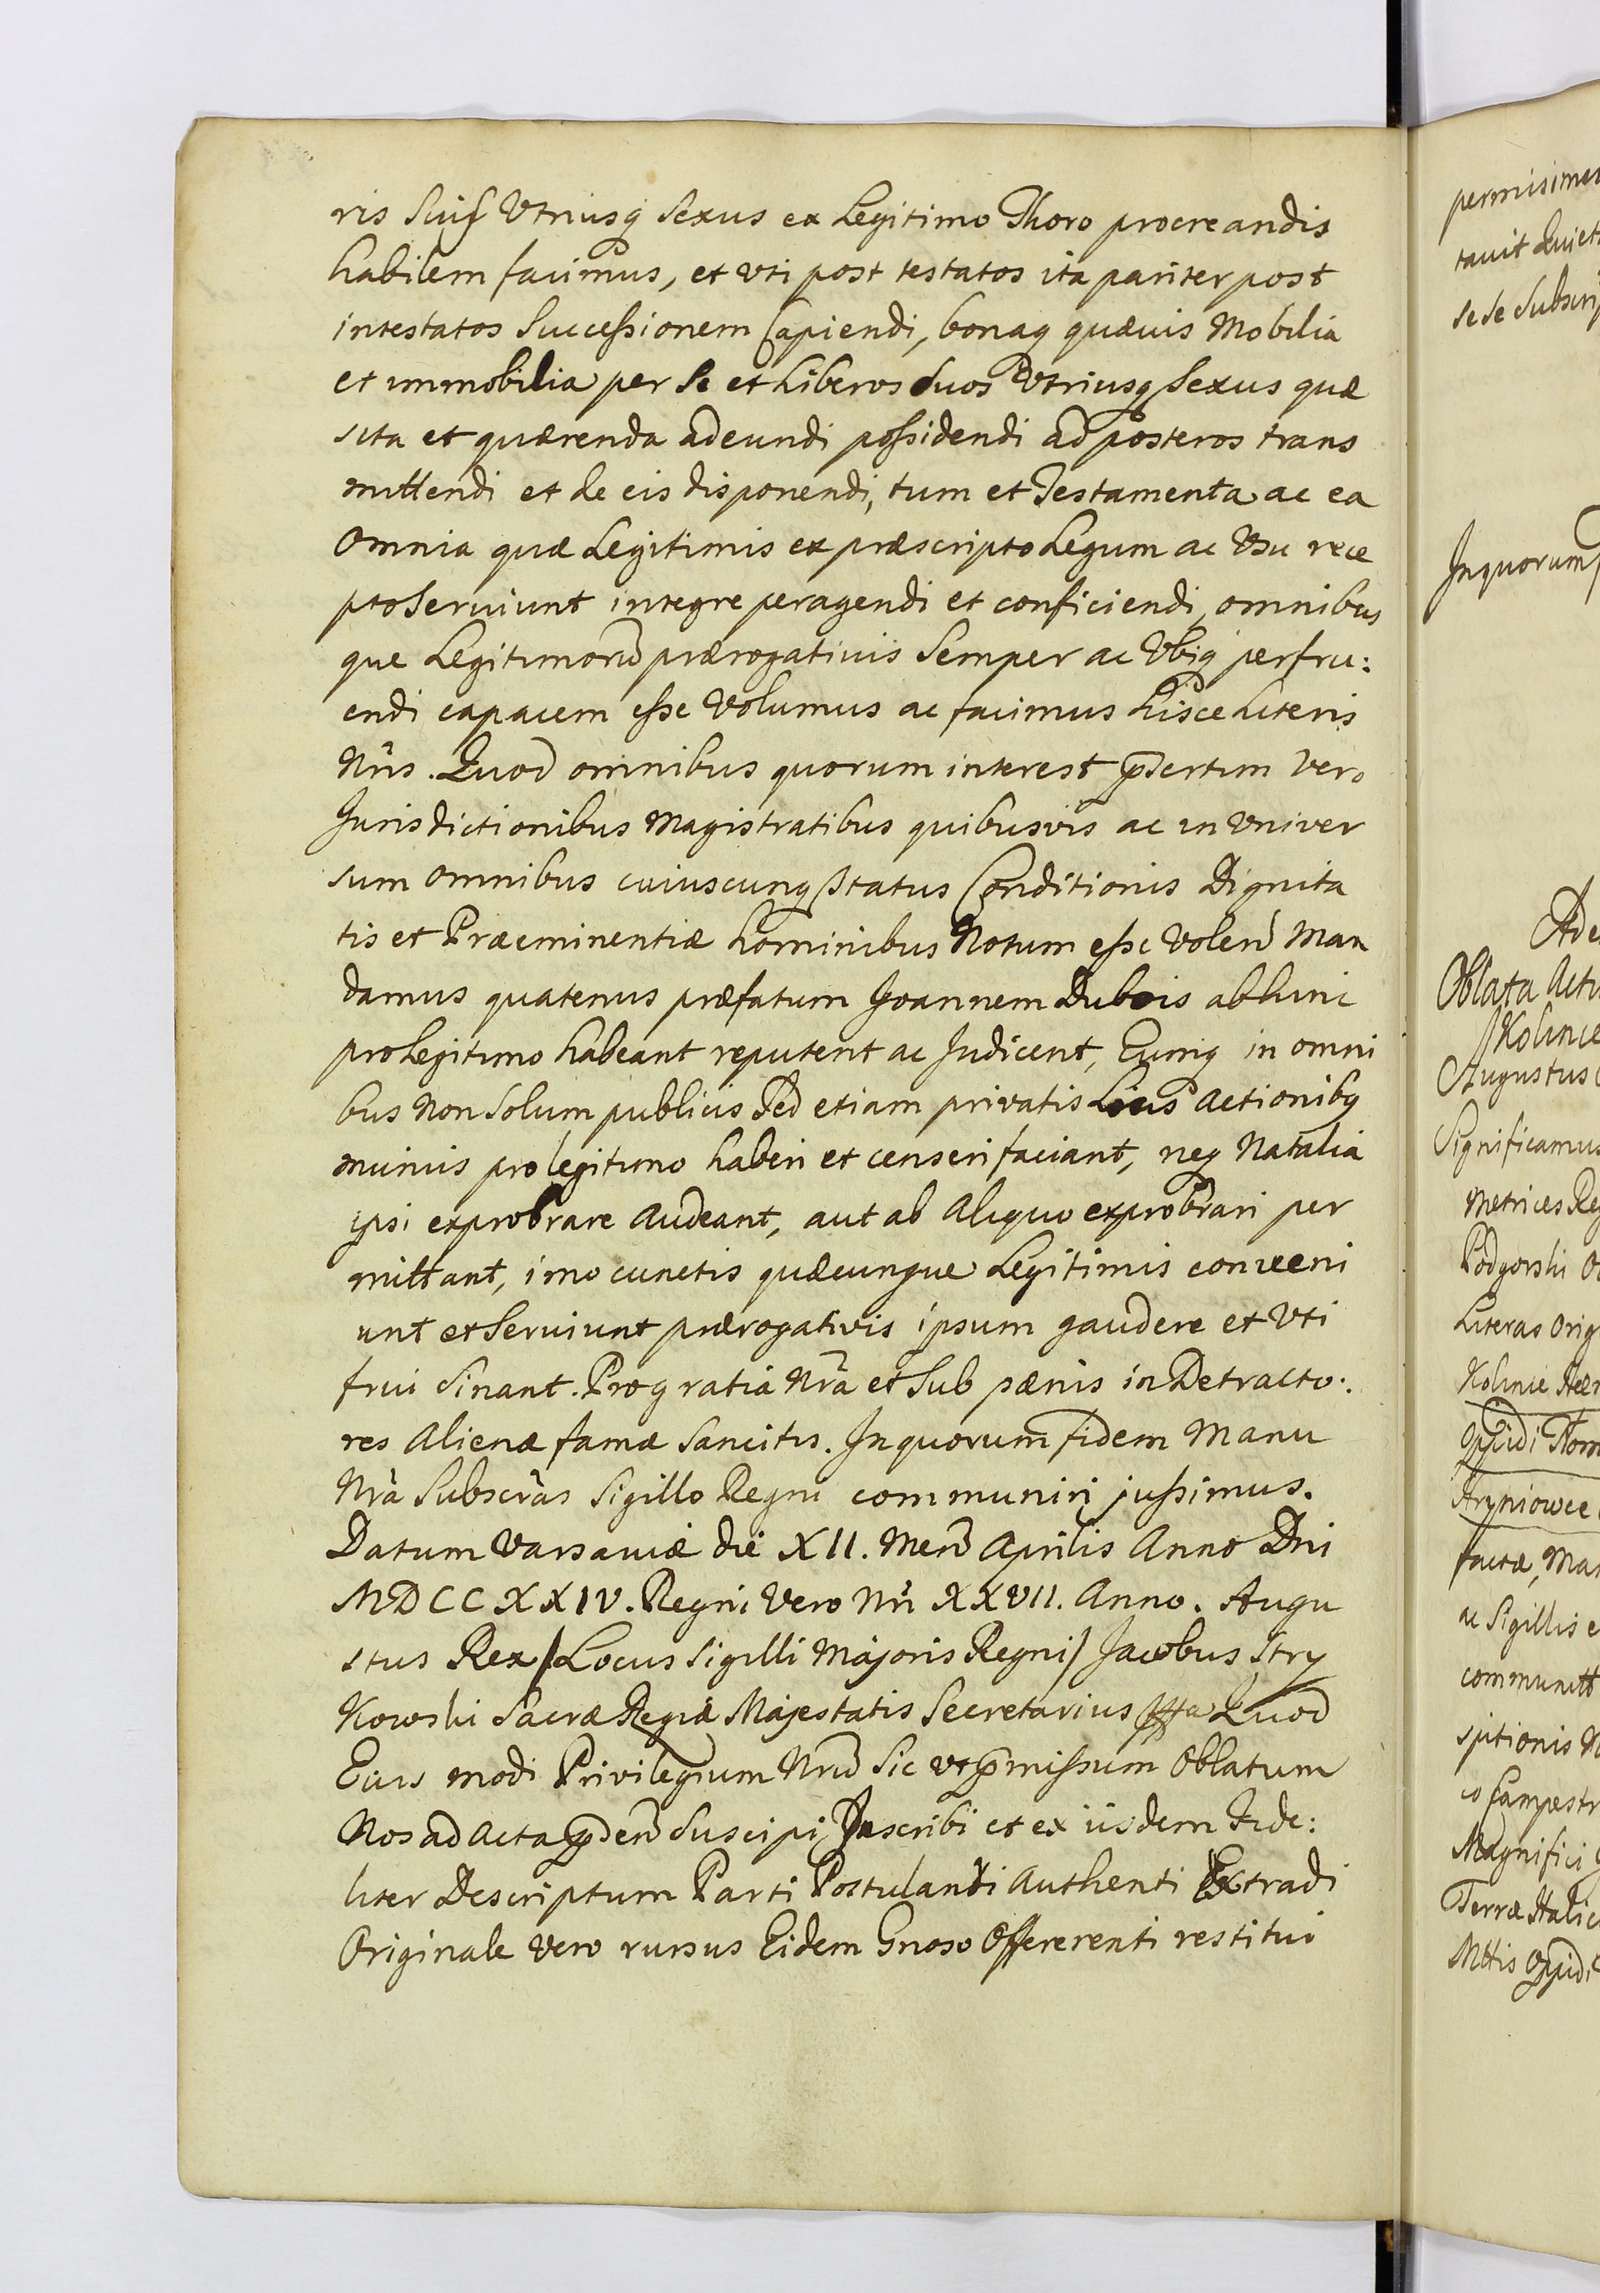 ris Suis Utriusq Sexus ex Legitimo Thoro procreandis
habilem facimus, et uti post testatos ita pariter post
intestatos Successionem Capiendi, bonaq quævis Mobilia
et immobilia per Se et Liberos suos Utriusq Sexus quæ
sita et quærenda adeundi possidendi ad posteros trans
mittendi et de eis disponendi, tum et Testamenta ac ea
Omnia quæ Legitimis ex præscripto Legum ac Usu rece
pto Serviunt integre peragendi et conficiendi, omnibus
que Legitimorũ prærogativis Semper ac Ubiq perfru:
endi capacem esse Volumus ac facimus hisce Literis
Nris. Quod omnibus quorum interest pŝertim Vero
Jurisdictionibus Magistratibus quibusvis ac in Univer
sum Omnibus cuiuscunq Status Conditionis Dignita
tis et Præeminentiæ hominibus Notum esse Volen̂ Man
damus quatenus præfatum Joannem Dubois abhinc
pro Legitimo habeant reputent ac Judicent, Eumq in omni
bus Non Solum publicis Sed etiam privatis Locis Actionibq
muniis pro legitimo haberi et censeri faciant, neq Natalia
ipsi exprobrare Audeant, aut ab Aliquo exprobrari per
mittant, imo cunctis quæcunque Legitimis conveni
unt et Serviunt prærogativis ipsum gaudere et Uti
frui Sinant. Pro gratia Nrã et Sub pænis in Detracto:
res Alienæ famæ Sancitis. In quorum fidem Manu
Nrã Subscrãs Sigillo Regni communiri jussimus.
Datum Varsaviæ die XII. Men̂ Aprilis Anno Dni
MDCCXXIV. Regni Vero Nri XXVII. Anno. Augu
stus Rex / Locus Sigilli Majoris Regni / Jacobus Stry
Kowski Sacræ Regiæ Majestatis Secretarius Quod
Eius modi Privilegium Nrũ Sic ut pmissum Oblatum
Nos ad Acta pn̂ Suscipi Inscribi et ex iisdem Fide:
liter Descriptum Parti Postulanti Authenti Extradi
Originale Vero rursus Eidem Gnoso Offererenti restitui
permisimus
sese Subscri
In quorum
Oblata
Augustus
Significamus
Metrices Reg
Podgorski
Literas Orig
factæ, Man
ac Sigillis
communit
Magnifici
Terræ Halic